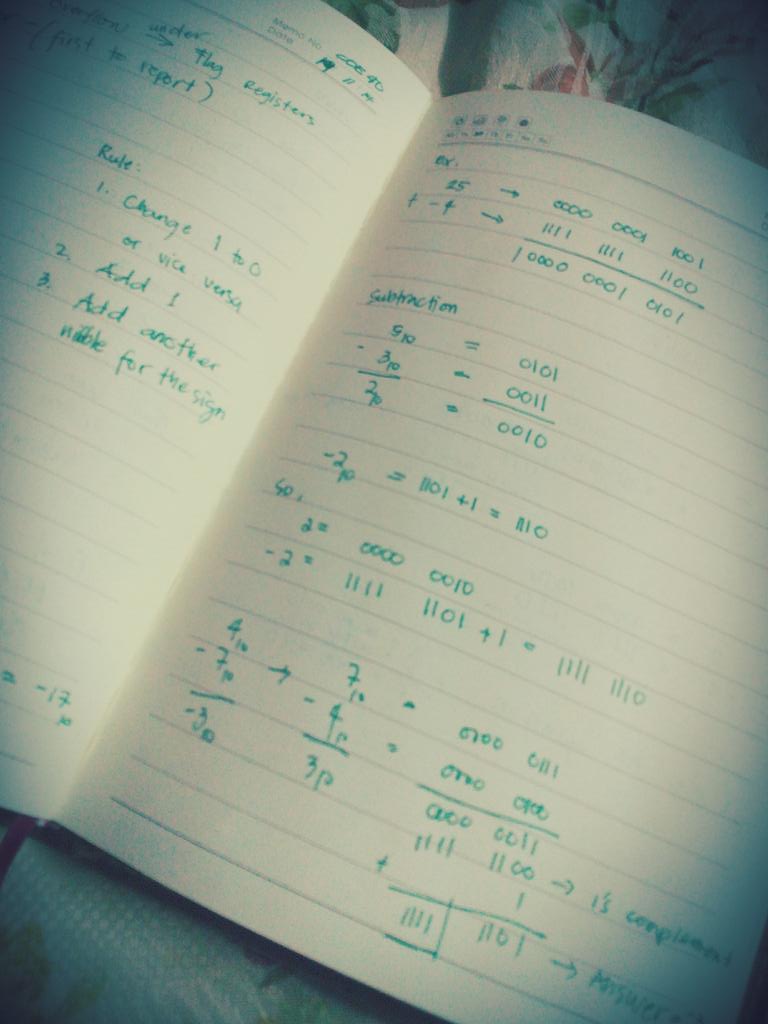 Memo No.
Date
under
→ flag registers
(first to report)
Rule:
1. Change 1 to 0
or vice versa
2. Add 1
3. Add another
nibble for the sign
= -17₁₀
ex.
25 → 0000 0001 1001
+ -4 → 1111 1111 1100
10000 0001 0101
Subtraction
5₁₀ = 0101
- 3₁₀ - 0011
2₁₀ = 0010
-2₁₀ = 1101 + 1 = 1110
So,
2 = 0000 0010
-2 = 1111 1101 + 1 = 1111 1110
4₁₀ → 7₁₀ = 0000 0111
- 7₁₀ - 4₁₀ = 0000 0100
-3₁₀ 3₁₀ 0000 0011
1111 1100 → 1's complement
+ 1
1111 1101 → Answer